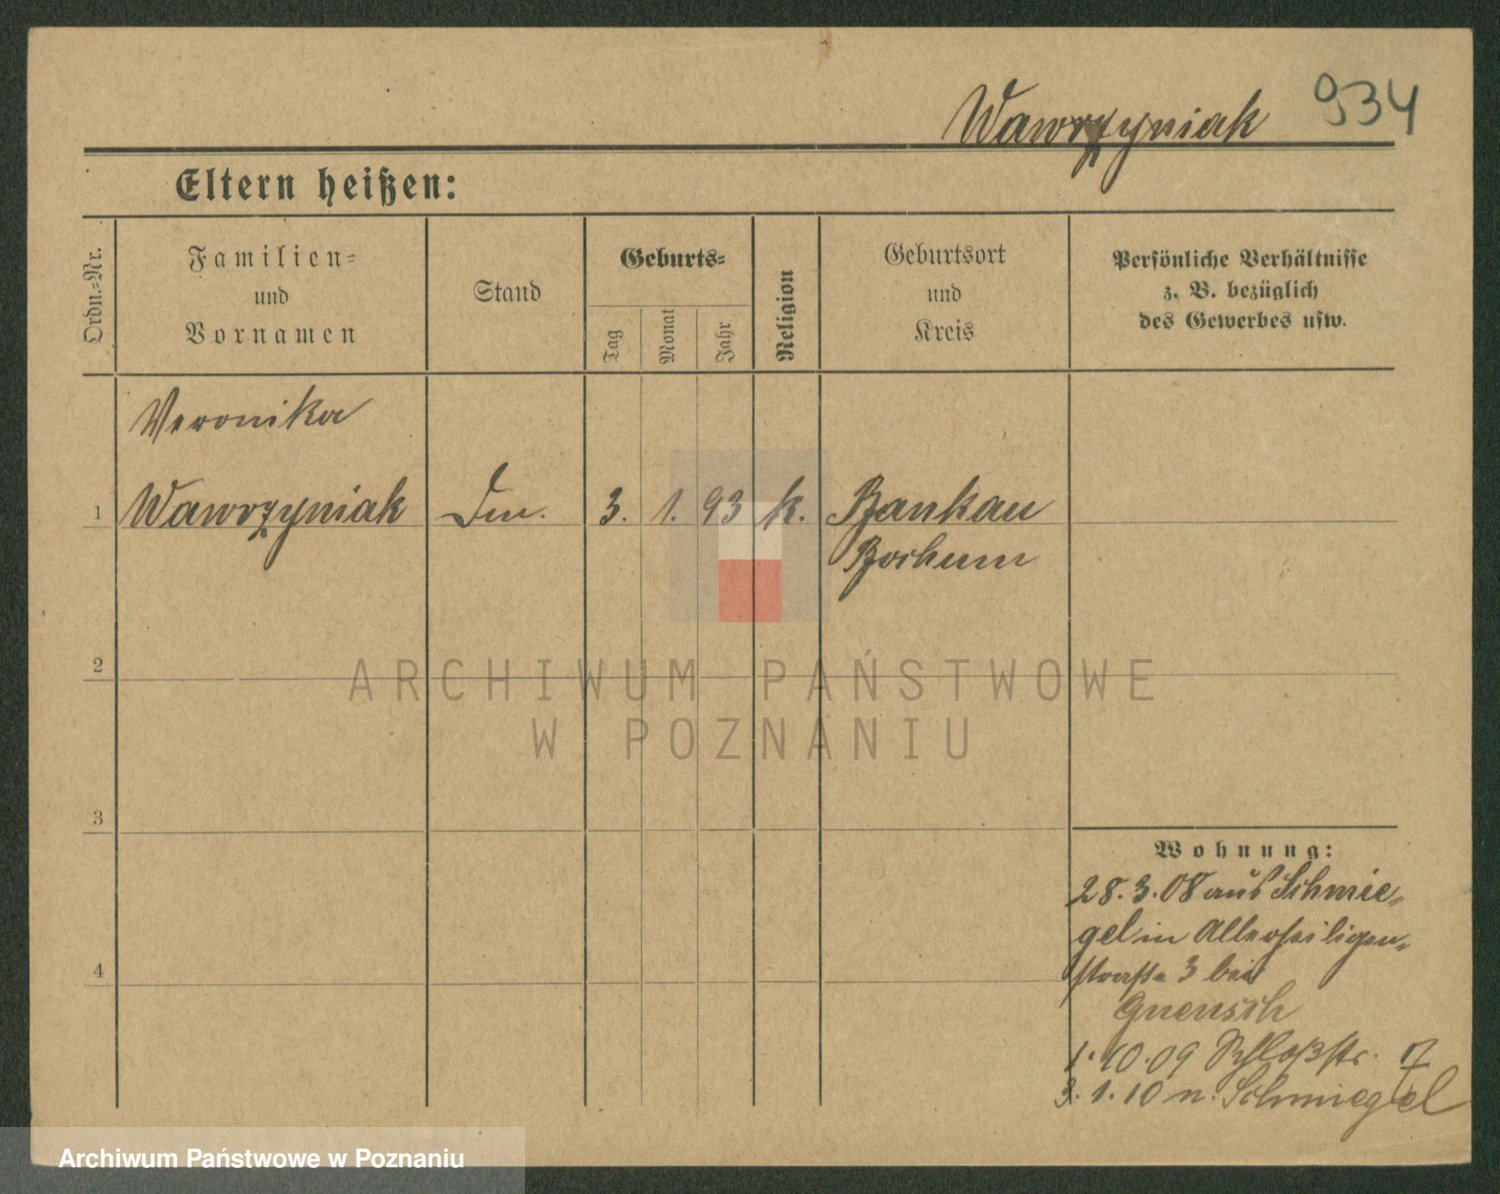 Wawrzyniak 934
Eltern heißen:
Ordn.-Nr.
Familien-
und
Vornamen
Stand
Geburts-
Tag
Monat
Jahr
Religion
Geburtsort
und
Kreis
Persönliche Verhältnisse
z. B. bezüglich
des Gewerbes usw.
Veronika
1 Wawrzyniak 3. 1. 93 k. Bankau
Bochum
2
3
4
Wohnung:
28.3.08 aus Schmie-
gel in Allerheiligen-
straße 3 bei
1.10.09 Schloßstr. 7
3.1.10 n. Schmiegel
ARCHIWUM PAŃSTWOWE
W POZNANIU
Archiwum Państwowe w Poznaniu